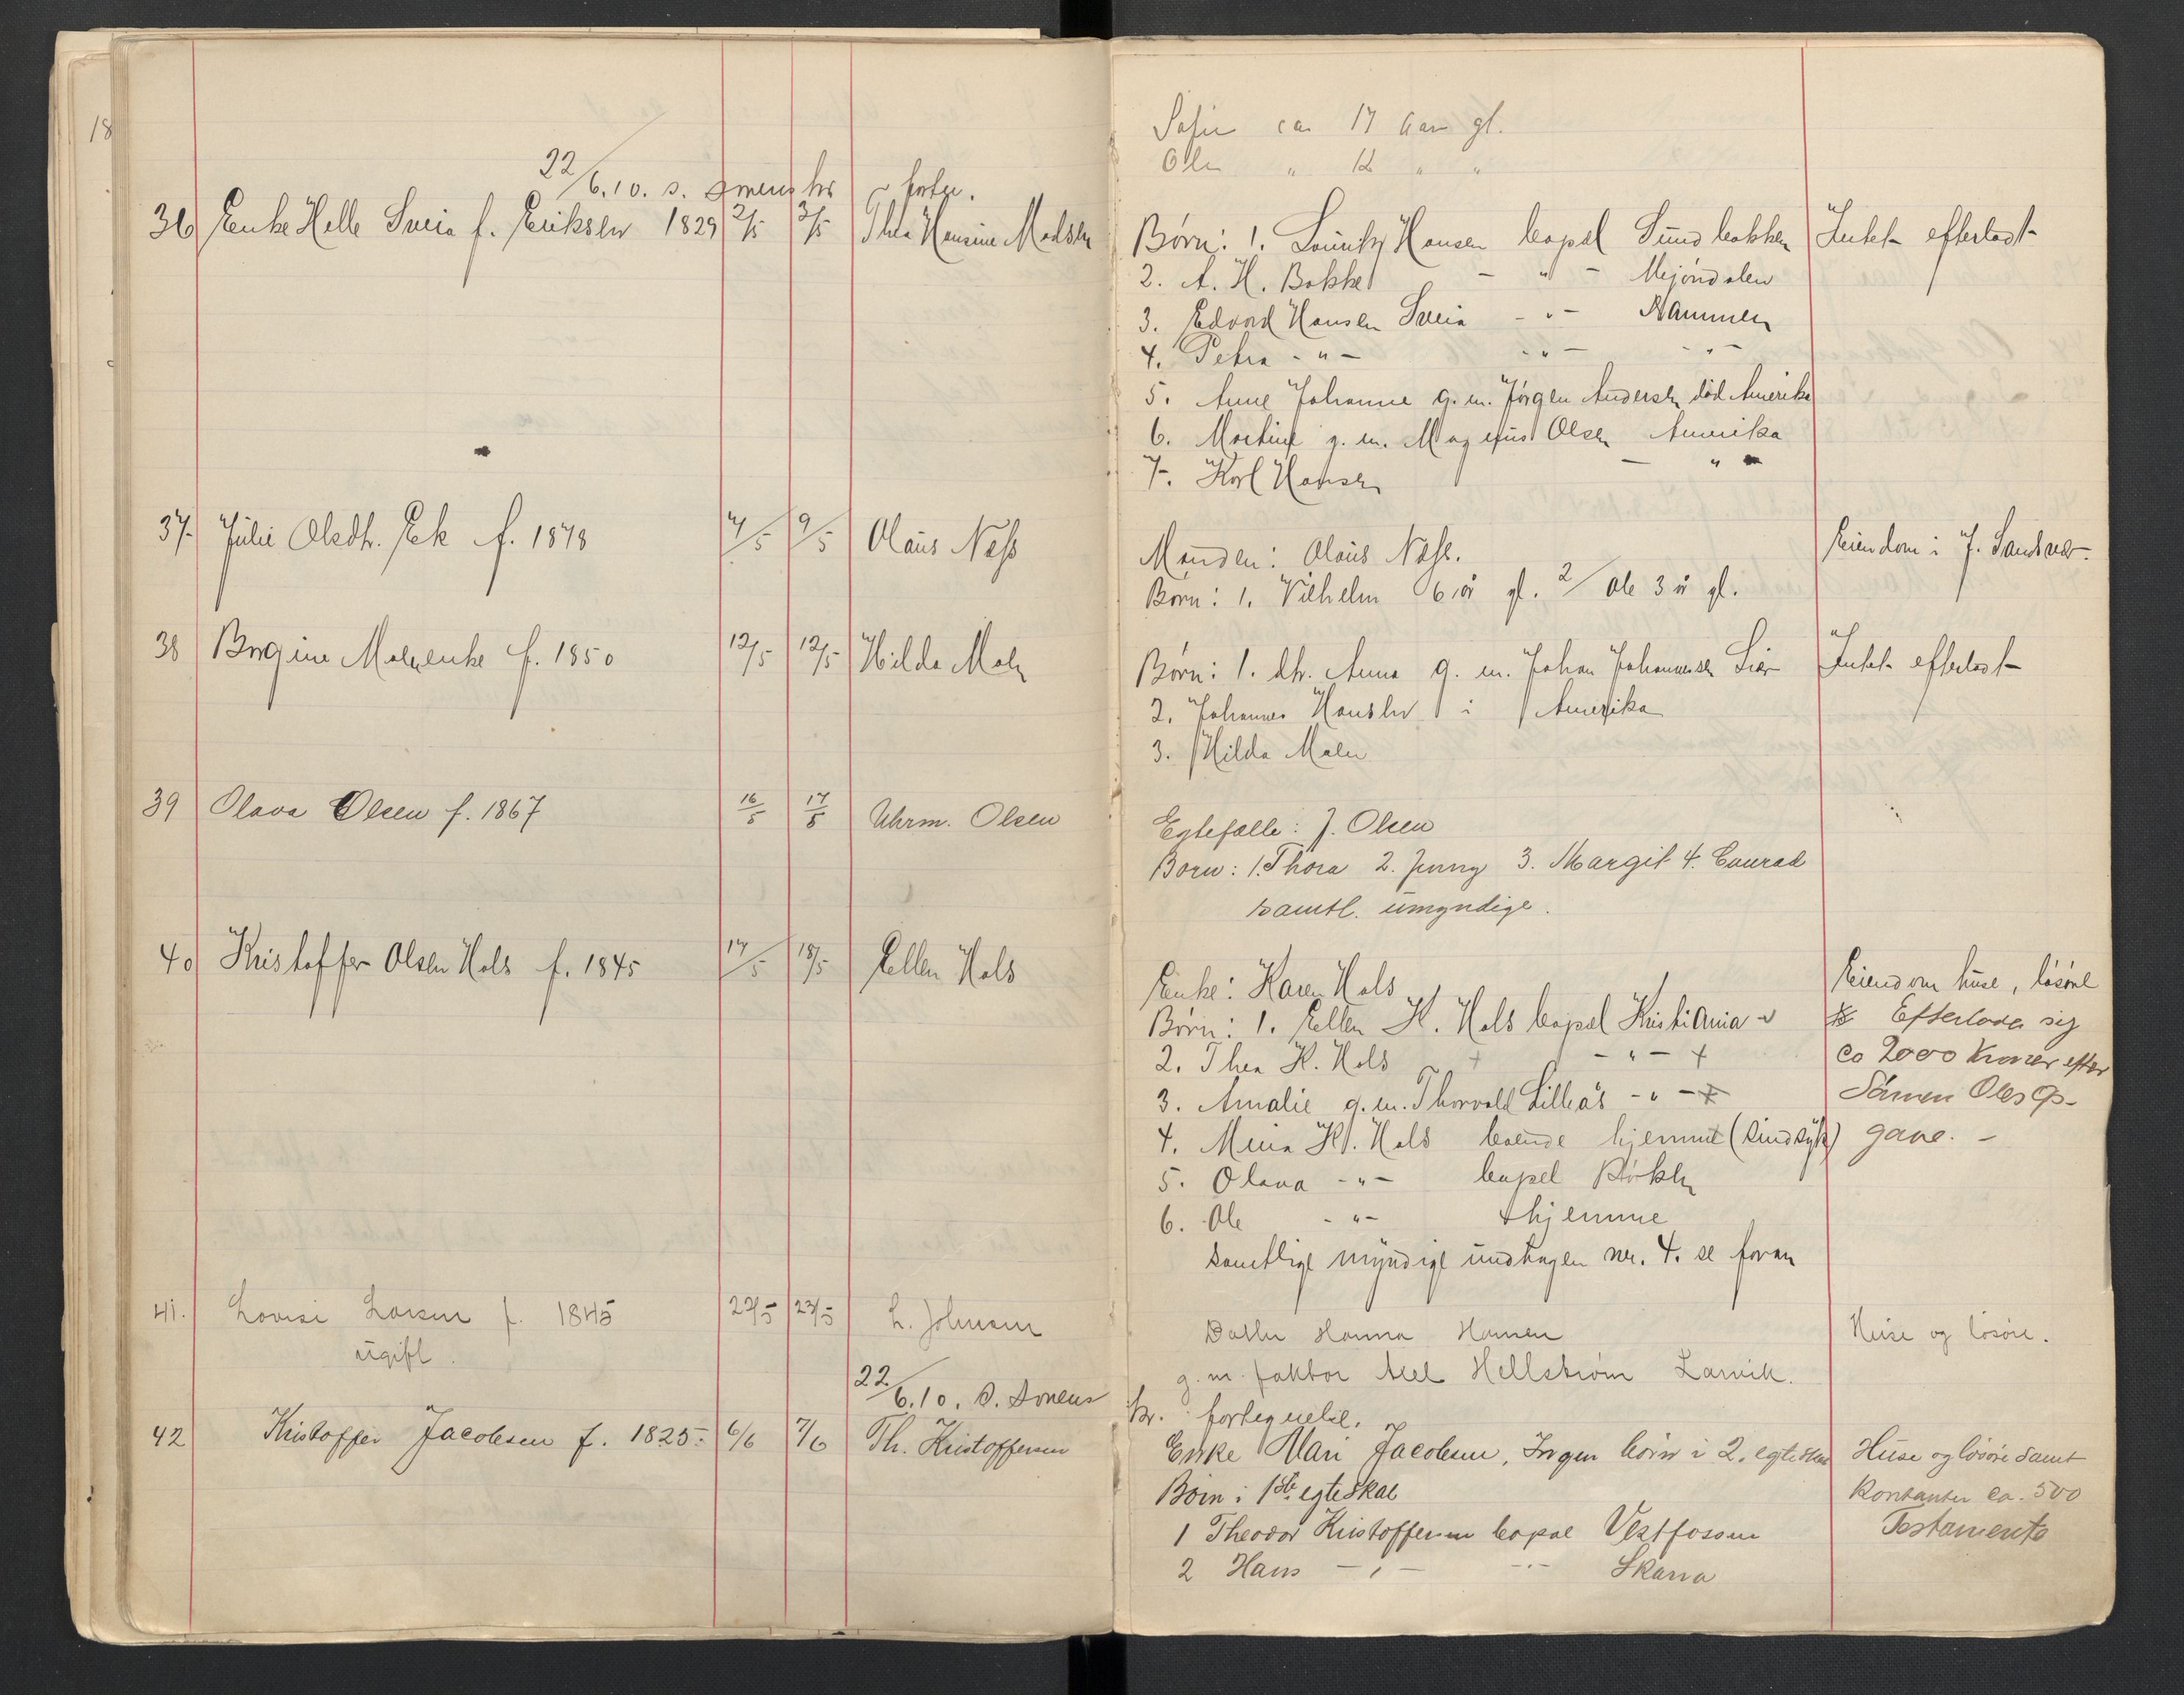 18
Sofie ca 17 aar gl.
Ole " 12 " "
22/6.10. s.
36 Enke Helle Sveia f. Eriksen 1829 2/5 3/5 Thea Hansine Madsen
Børn: 1. Lauritz Hansen bopæl Sundbakken Intet efterladt
2. A. H. Bakke - " - Mejøndalen
3. Edvard Hansen Sveia - " - Drammen
4. Petra - " - - " - - " -
5. Anne Johanne g. m. Jørgen Andersen død Amerika
6. Martine g. m. Magnus Olsen Amerika
7. Karl Hansen - "
37. Julie Olsdtr. Eek f. 1878 4/5 9/5 Olaus Næss
Manden: Olaus Næss. Eiendom i Y. Sandsvær.
Børn: 1. Vilhelm 6 år gl. 2/ Ole 3 år gl.
38 Bergine Malmenke f. 1850 12/5 12/5 Hilda Malm
Børn: 1. dtr. Anna g. m. Johan Johannessen Lier Intet efterladt
2. Johannes Hansen i Amerika
3. Hilda Malm
39 Olava Olsen f. 1867 16/5 17/5 Uhrm. Olsen
Egtefælle: J. Olsen
Børn: 1. Thora 2. Jenny 3. Margit 4. Conrad
samtl. umyndige.
40 Kristoffer Olsen Hals f. 1845 17/5 18/5 Ellen Hals
Enke: Karen Hals Eiendom huse, løsøre
Børn: 1. Ellen K. Hals bopæl Kristiania Efterlader sig
2. Thea K. Hals - " - ca 2000 Kroner efter
3. Amalie g. m. Thorvald Lilleås - " - Sønnen Oles Op-
4. Mina K. Hals boende hjemme (sindsyk) gave. -
5. Olava - " - bopæl
6. Ole - " - hjemme
samtlige myndige undtagen nr. 4. se foran
41. Lovise Larsen f. 1845 22/5 23/5 L. Johnsen
ugift.
Datter Hanna Hansen Huse og løsøre.
g. m. faktor Axel Hellstrøm Larvik.
22/6.10. s. fortegnelse.
42 Kristoffer Jacobsen f. 1825. 6/6 7/6 Th. Kristoffersen
Enke Mari Jacobsen, Ingen børn i 2. egteskab Huse og løsøre samt
Børn i 1ste egteskab kontanter ca. 500
1 Theodor Kristoffersen bopæl Vestfossen Testamente
2 Hans - " - - " - Skarra